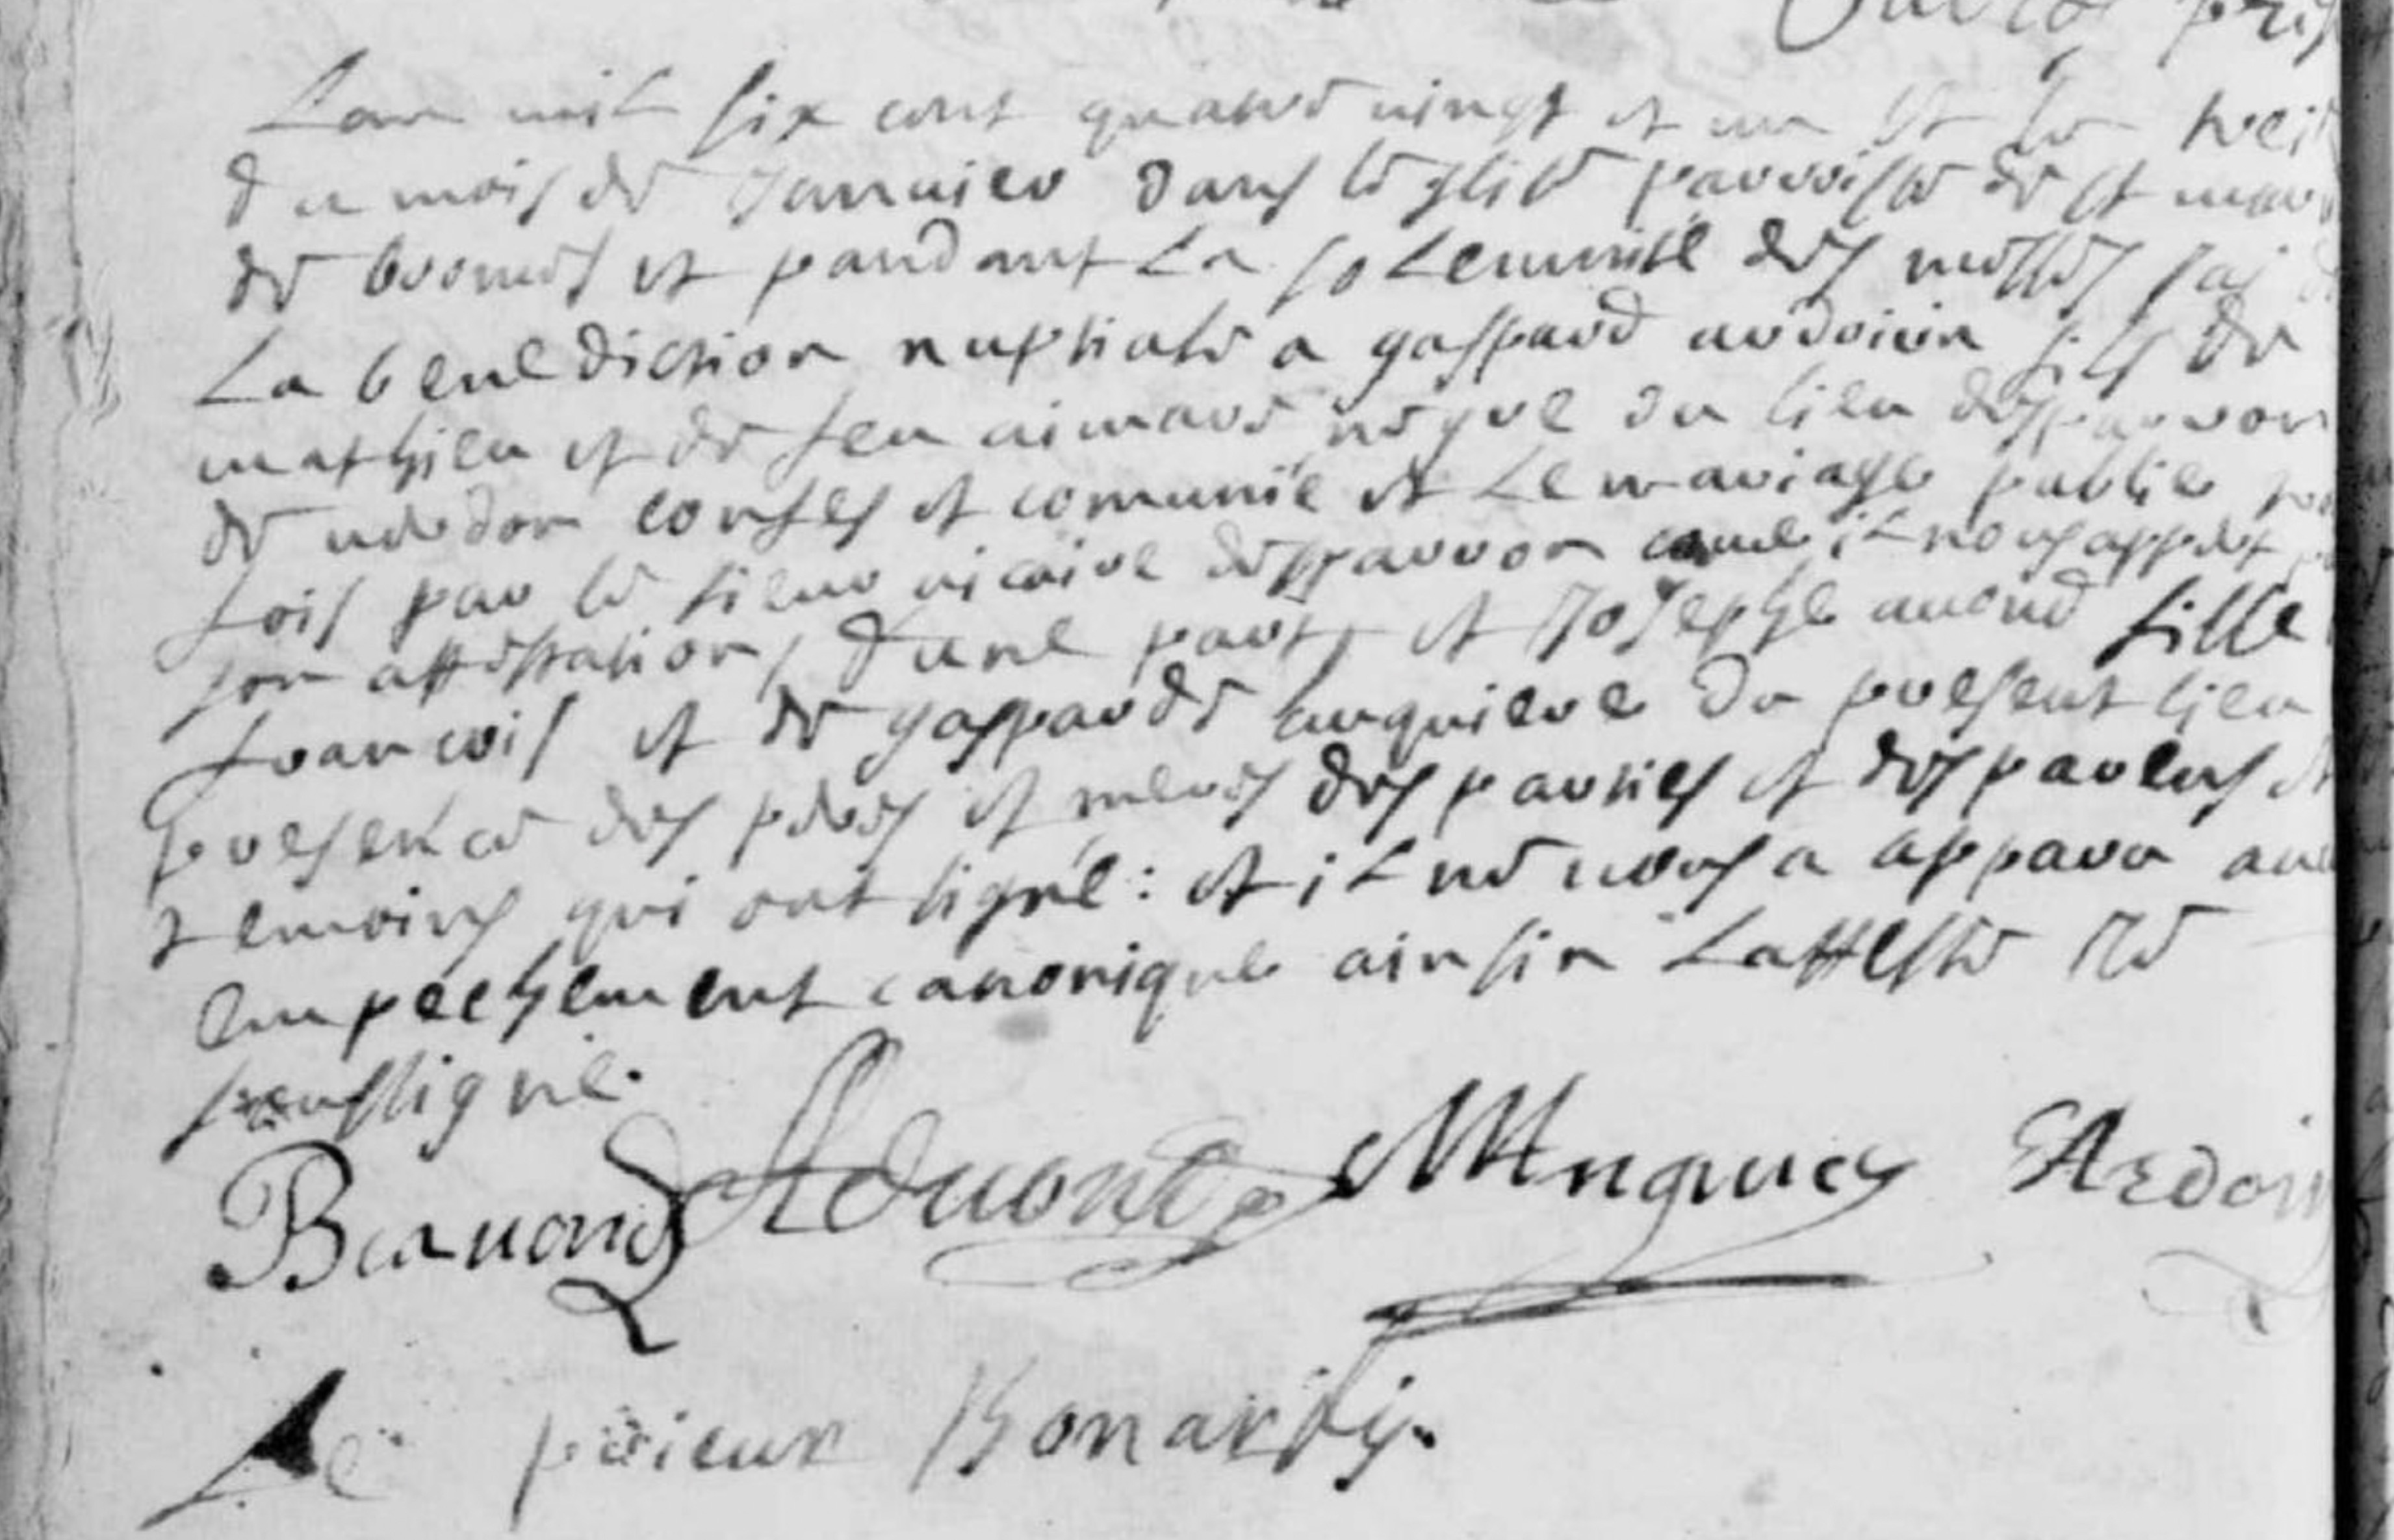 Lan mil six cent quatre vingt et un et le treis
du mois de Janvier dans leglise parroisse de st mar
de bromes et pandant La solemnité des messes jai
La benediction nuptiale a gaspard ardoin fils de
mathieu et de feu aimare negre du lieu desparron
de verdon confes et comunié et Le mariage publie
fois par le sieur vicaire desparron come il nous appert
son attestation, dune part, et Josephe auond fille
francois et de gasparde anquiere du present lieu
presence des peres et meres des parties et des parens et
temoins qui ont signé : et il ne nous a apparu au
empechement canonique ainsin Latteste Je
soussigné.
Beauond Aduond MAngues Ardoin
Le prieur Bonardy.